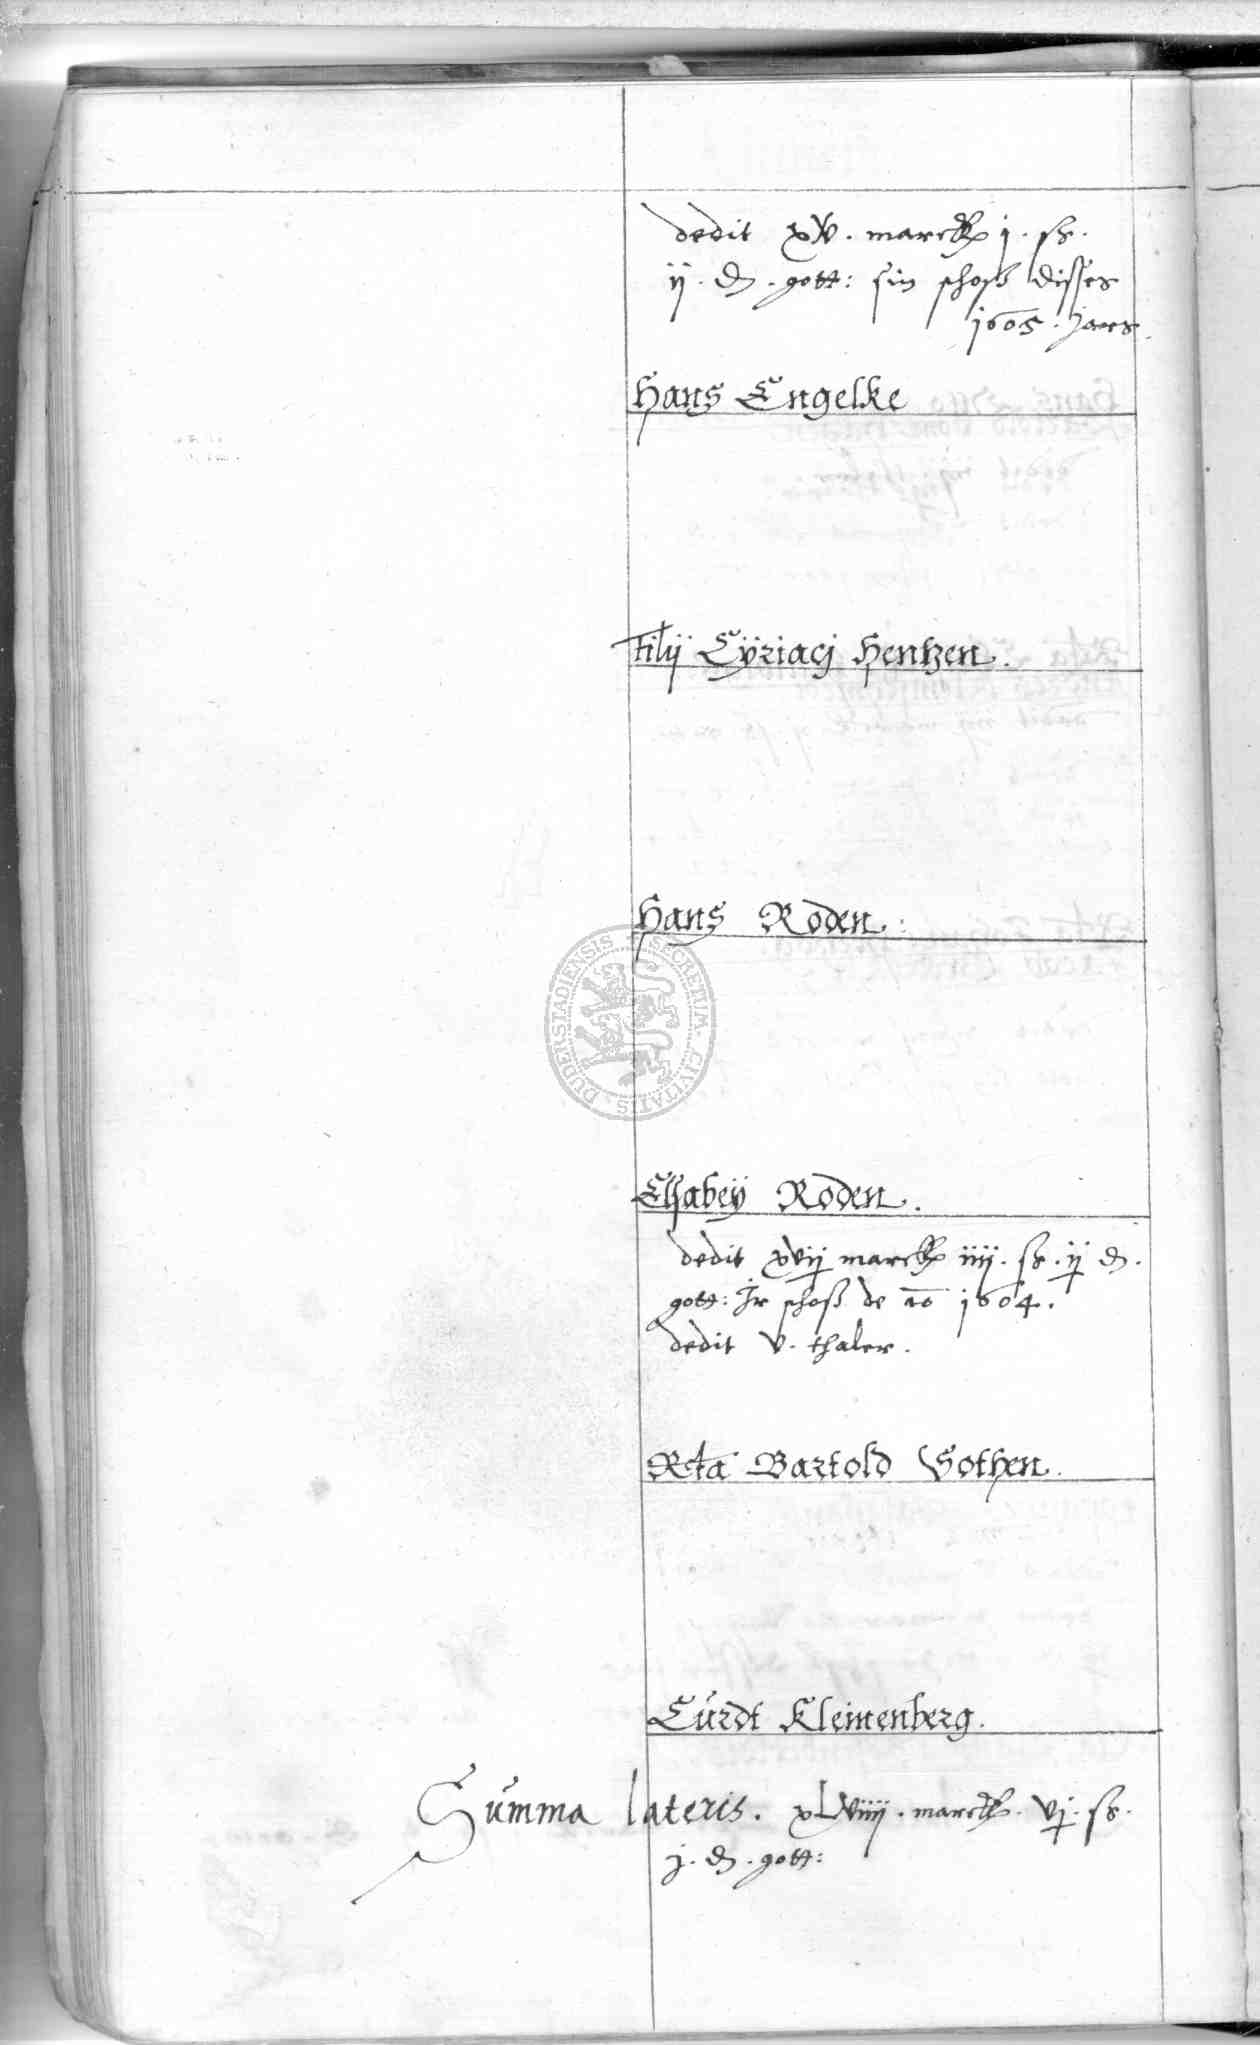 dedit xv. marck j. ß.
ij. d. gott: sin schoß disses
1605. Jars.
Hans Engelke
Filij Cÿriacj Hentzen.
Hans Roden.
SECRETUM · CIVITATIS · DUDERSTADIENSIS
Elsabeÿ Roden.
dedit xvij marck iiij. ß. ij d.
gott: Jr schoß de ao 1604.
dedit v. thaler.
Rta Bartold Gothen.
Cúrdt Kleinenberg.
Súmma lateris. xLviiij. marck. vj. ß.
j. d. gott: